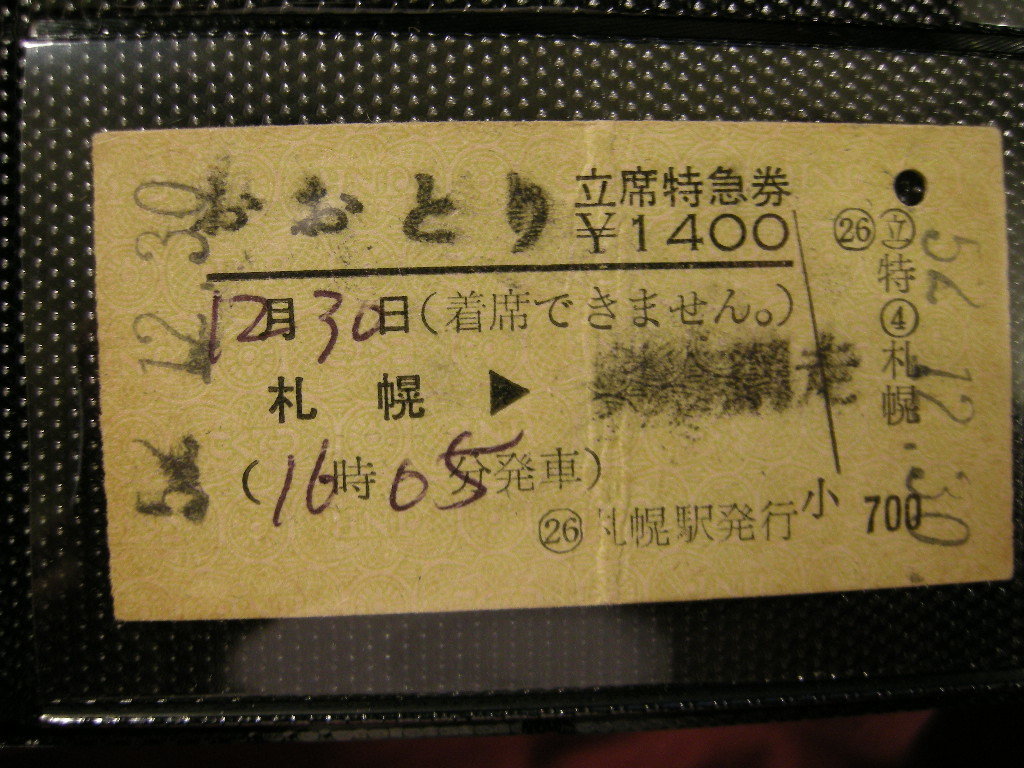 おおとり 立席特急券
¥1400
12月30日(着席できません。)
札幌▶
(16時05分発車)
㉖ 札幌駅発行
小 700
㉖ 立 特 ④ 札幌
12.30
12.30